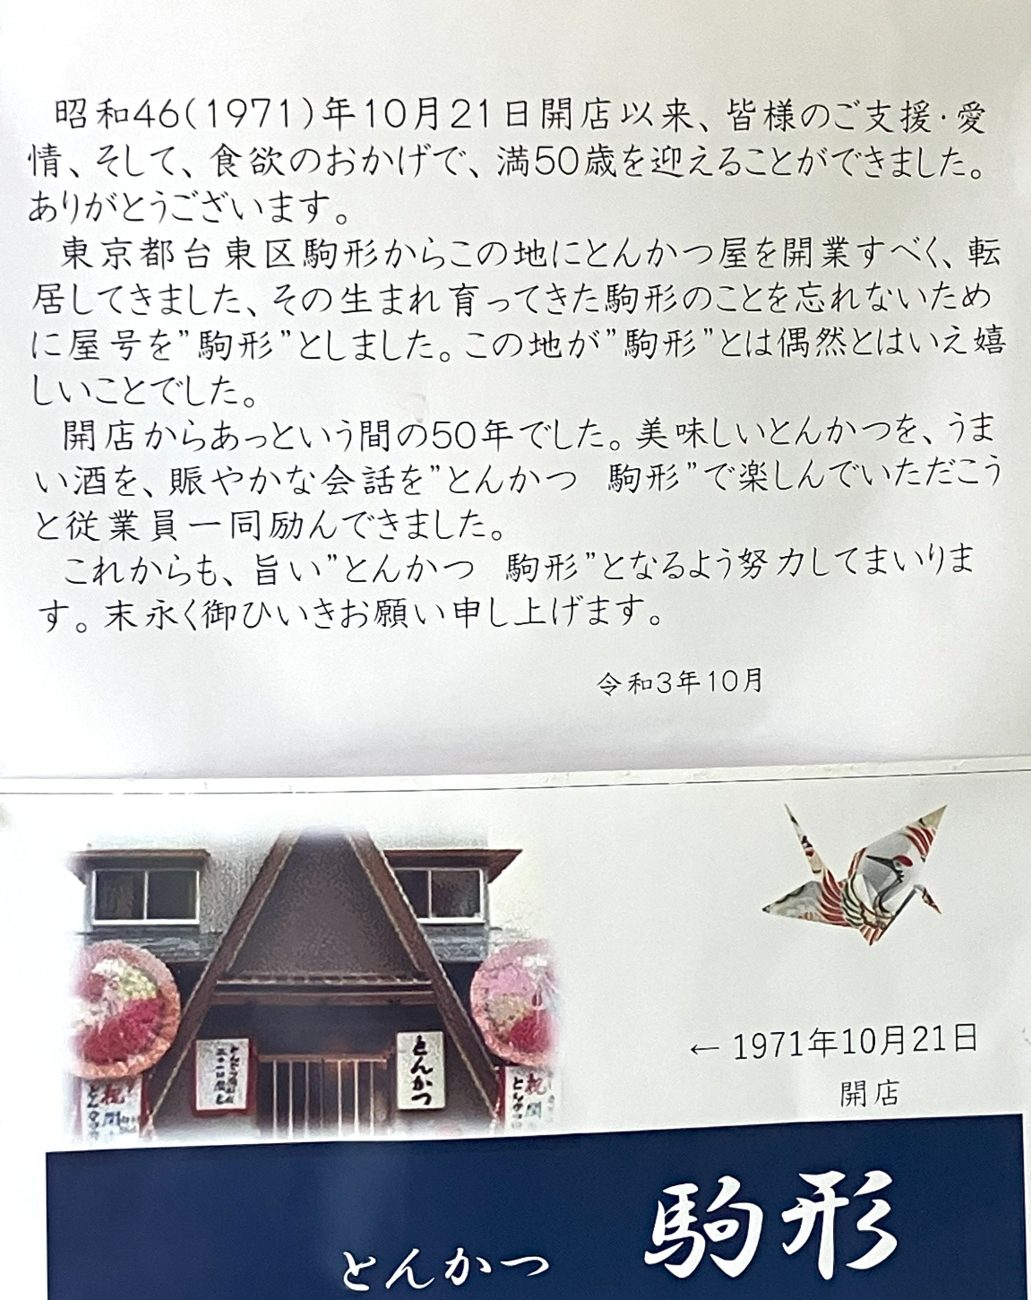 昭和46(1971)年10月21日開店以来、皆様のご支援·愛
情、そして、食欲のおかげで、満50歳を迎えることができました。
ありがとうございます。
東京都台東区駒形からこの地にとんかつ屋を開業すべく、転
居してきました、その生まれ育ってきた駒形のことを忘れないため
に屋号を”駒形”としました。この地が”駒形”とは偶然とはいえ嬉
しいことでした。
開店からあっという間の50年でした。美味しいとんかつを、うま
い酒を、賑やかな会話を”とんかつ 駒形”で楽しんでいただこう
と従業員一同励んできました。
これからも、旨い”とんかつ 駒形”となるよう努力してまいりま
す。末永く御ひいきお願い申し上げます。
令和3年10月
とんかつ
祝
祝
← 1971年10月21日
開店
とんかつ 駒形